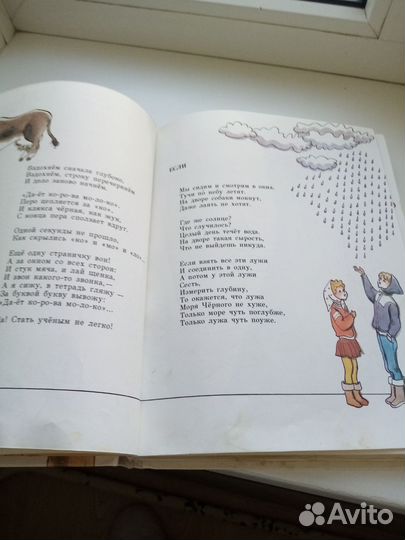 Вздохнём сначала глубоко,
Вздохнём, строку перечеркнём
И дело заново начнём.
«Да-ёт ко-ро-ва мо-ло-ко».
Перо цепляется за «ко»,
И клякса чёрная, как жук,
С конца пера сползает вдруг.
Одной секунды не прошло,
Как скрылись «ко» и «мо» и «ло»...
Ещё одну страничку вон!
А за окном со всех сторон:
И стук мяча, и лай щенка,
И звон какого-то звонка,—
А я сижу, в тетрадь гляжу —
За буквой букву вывожу:
«Да-ёт ко-ро-ва мо-ло-ко»...
а! Стать учёным не легко!
ЕСЛИ
Мы сидим и смотрим в окна.
Тучи по небу летят.
На дворе собаки мокнут,
Даже лаять не хотят.
Где же солнце?
Что случилось?
Целый день течёт вода.
На дворе такая сырость,
Что не выйдешь никуда.
Если взять все эти лужи
И соединить в одну,
А потом у этой лужи
Сесть,
Измерить глубину,
То окажется, что лужа
Моря Чёрного не хуже,
Только море чуть поглубже,
Только лужа чуть поуже.
Avito